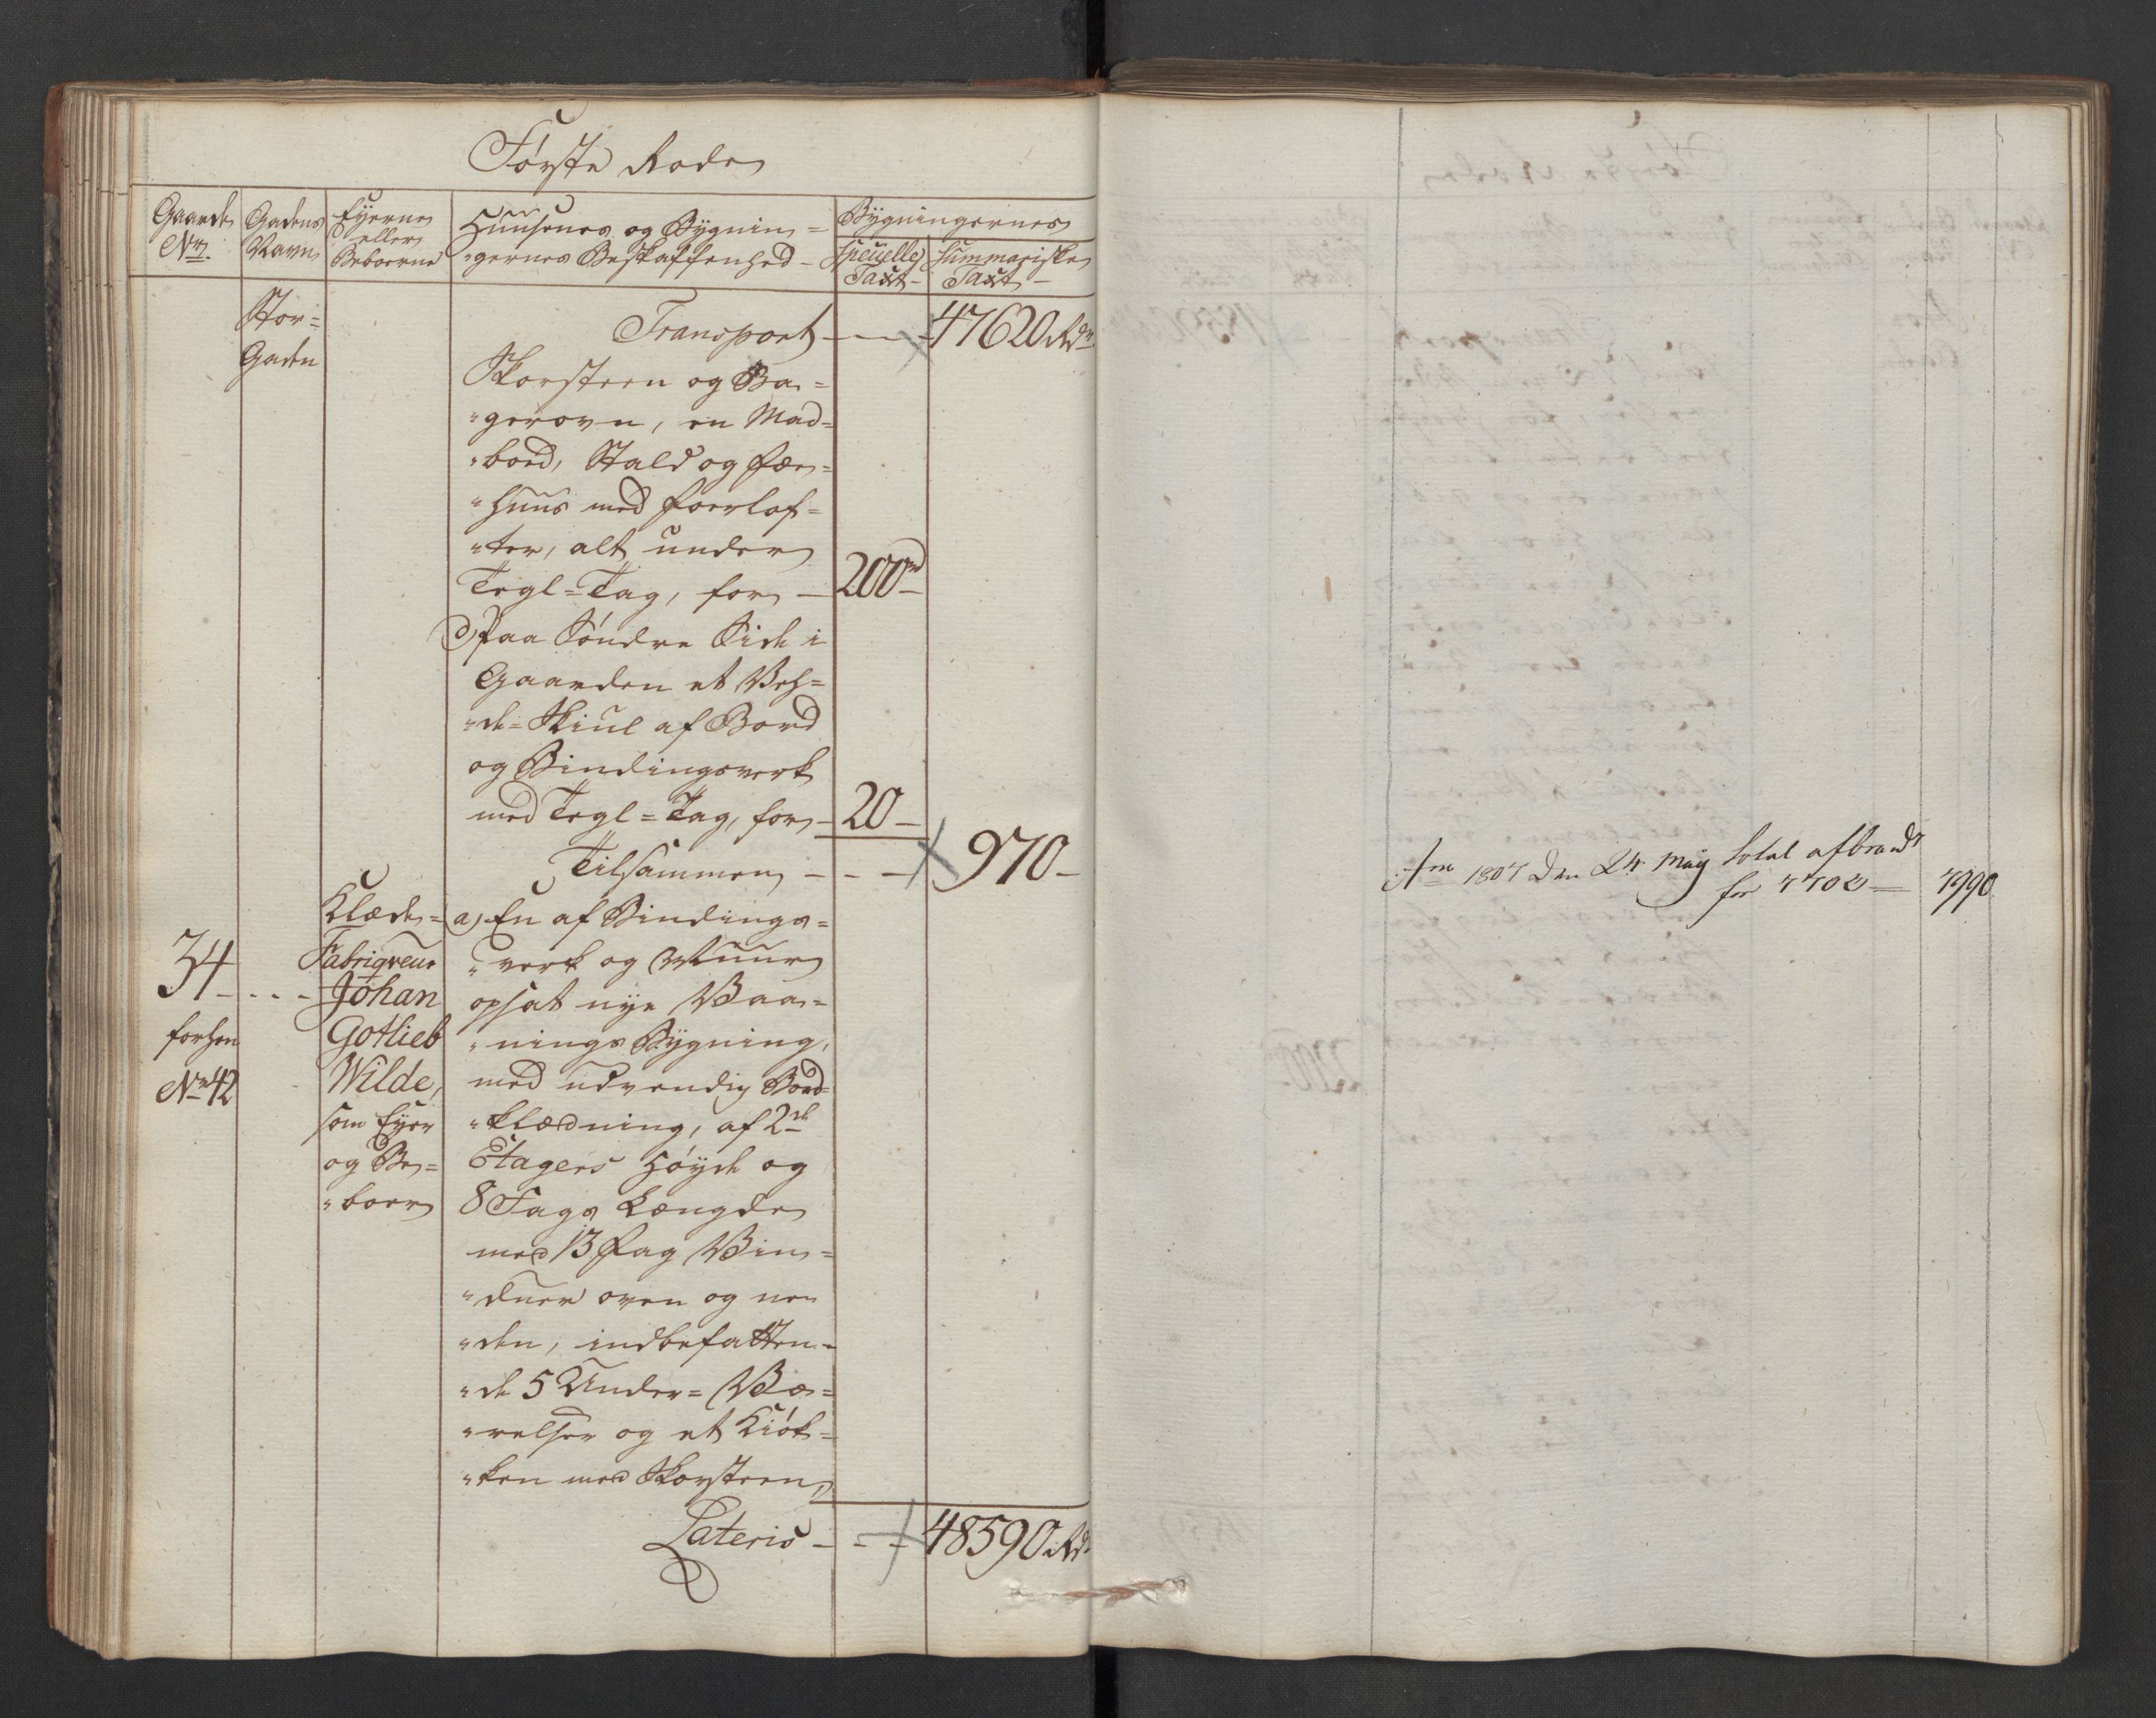 Første Rode
Gaardens No.
Gadens Navn
Eyerne eller Beboerne
Huusenes og Bygnin=
"gernes Beskaffenhed
Bygningernes
Specielle Taxt
Summariske Taxt
Stor=
Gaden
Transport - - - 47620 Rdr
Skorsteen og Ba=
"gerovn, en Mad=
"bod, Stald og Fæ=
"huus med Foerlof=
"ter, alt under
Tegl=Tag, for - 200 rd
d) Paa Søndre Side i
Gaarden et Veh=
"de=Skiul af Bord
og Bindingsverk
med Tegl=Tag, for - 20 -
Tilsammen - - - 970 -
34 - - - -
forhen
No 42
Klæde=
Fabriqveur
Johan
Gotlieb
Wilde,
som Eyer
og Be=
"boer
a) En af Bindings=
"verk og Muur
opsat nye Vaa=
"nings Bygning,
med udvendig Bord=
"klædning, af 2de
Etagers Høyde og
8 Fags Længde
med 13 Fag Vin=
"duer oven og ne
"den, indbefatten=
"de 5 Under=Væ=
"relser og et Kiøk=
"ken med Skorsteen,
Lateris - - - 48590 Rd
Den 24 Maij total afbrandt
for